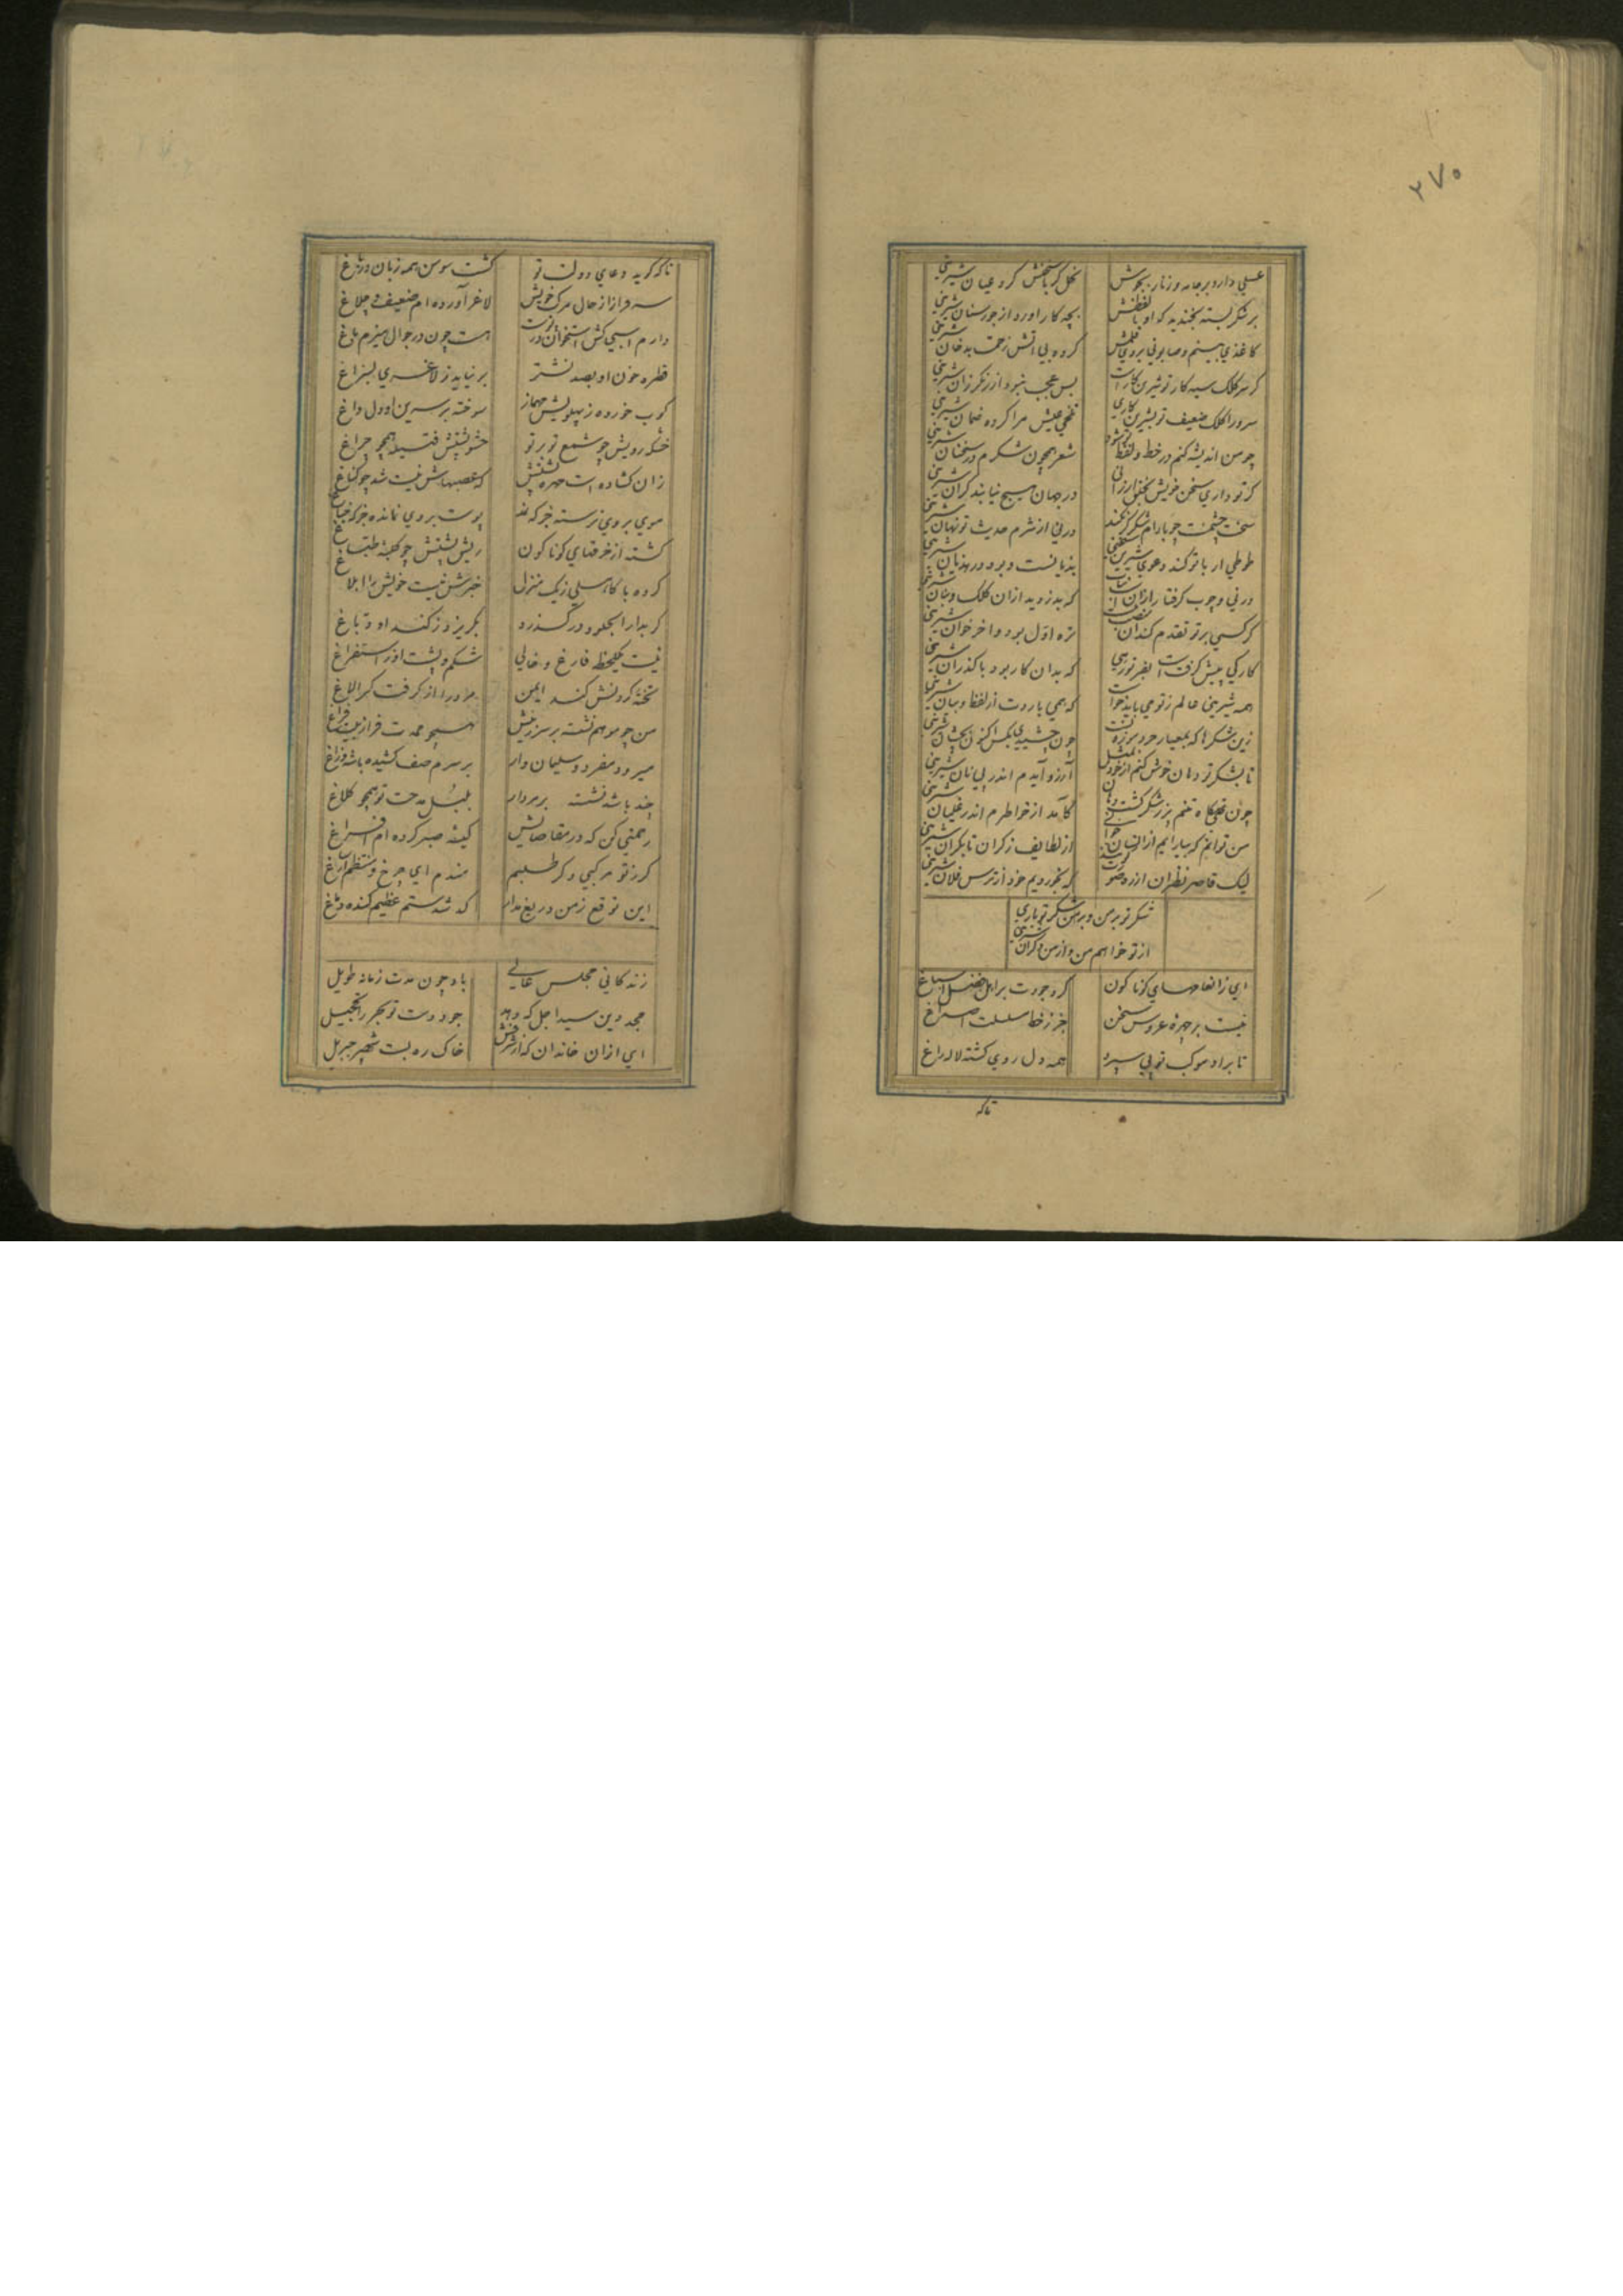 ۲۷۵
عسلی دارد بر جامه و زنار بجوش نحل کز باسخنش کرد عیان شیرینی
بر شکر بسته بخندید که او با لفظش بچه کار آورد از جورستان شیرینی
کاغذی بینم و صابونی بر روی قلمش کرده بی آتش زحمت بدخان شیرینی
کر سر کلک سیه کار تو شیرین کارست بس عجب نبود از زنکرزان شیرینی
سرورا کلک ضعیف تو بشیرین کاری تلخی عیش مرا کرده ضمان شیرینی
چو من اندیشه کنم در خط و لفظت شود شعر همچون شکرم در سخنان شیرینی
کر تو داری سخن خویش بنحل ارزانی در جهان هیچ نیابند کران شیرینی
سخت چشمست چو بادام شکر کر نکند درنی از شرم حدیث تو نهان شیرینی
طوطی ار با تو کند دعوی شیرین سخنی هذیانست و بود در هذیان شیرینی
در نی و چوب کرفتار ازان نبات که بدزدید ازان کلک و بنان شیرینی
کر کسی بر تو تقدم کند آن تره اول بود و آخر خوان شیرینی
کارکی پیش کرفت است که بدان کار بود با کذران شیرینی
همه شیرینی عالم ز تو می باید خواست که همی بارد از لفظ و بیان شیرینی
زین شکرها که بمعیار خرد موزونست
تا بشکر تو دهان خوش کنم آرزو آیدم اندر پی نان شیرینی
کآمد از خواطرم اندر غلیان شیرینی
من توانم که بیارایم از لطایف ز کران تا بکران شیرینی
لیک قاصر نظران که نخوردیم خود از ترس فلان شیرینی
شکر تو بر من و بر من شکر تو باری
از تو خواهم من و از من دکران شیرینی
ای ز انعامهای کوناکون کرد جودت بر اهل فضل اسباغ
نیست بر چهره عروس سخن جز ز خط مسلسلت اصداغ
تا براه موکب تو پی سپرد همه دل روی کشته لاله راغ
تا که
تا که کوید دعای دولت تو کشت سوسن همه زبان در باغ
سه فراز از حال مرکب خویش لاغر آورده ام ضعیف و چلاغ
دارم اسبی کش استخوان در پوست هست چون در جوال هیزم تاغ
قطره خون او بصد نشتر بر نیاید ز لاغری بسزاغ
کوب خورده ز پهلویش مهماز سوخته بر سرین او دل داغ
خشک رویش چو شمع تو بر تو حشو پشتش فتیله همچو چراغ
زان کشاده است مهره پشتش که عصبهاش نیست شد چو کناغ
موی بر وی نرسته جز که پوست بر وی نمانده جز که
کشته از خرقهای کوناکون ریش پشتش چو کلبه طباغ
کرده با کاهلی ز یک منزل خبرش نیست خویش را ابلاغ
کر بدار الجلود در کذرد بکریزد ز کند او دباغ
نیست یکلحظه فارغ و خالی شکم و پشت او ز استفراغ
تخته کردنش کند ایمن مادرا از کرفت کر الاغ
من چو مو هم نشسته بر سر ریش همچو همت فراز پشت
میرود مفرد و سلیمان وار بر سرم صف کشیده باشه و زاغ
چند باشد نشسته بر مردار بلبل مدحت تو همچو کلاغ
رحمتی کن که در مقاصایش کیسه صبر کرده ام افراغ
کر ز تو مرکبی دکر طلبم
این توقع ز من دریغ مدار که شدستم عظیم کنده دماغ
زندکانی مجلس عالی باد چون مدت زمانه طویل
مجد دین سید اجل که دهد جود دست تو بحر را تخجیل
ای ازان خاندان که از شرفش خاک ره بست شهپر جبریل